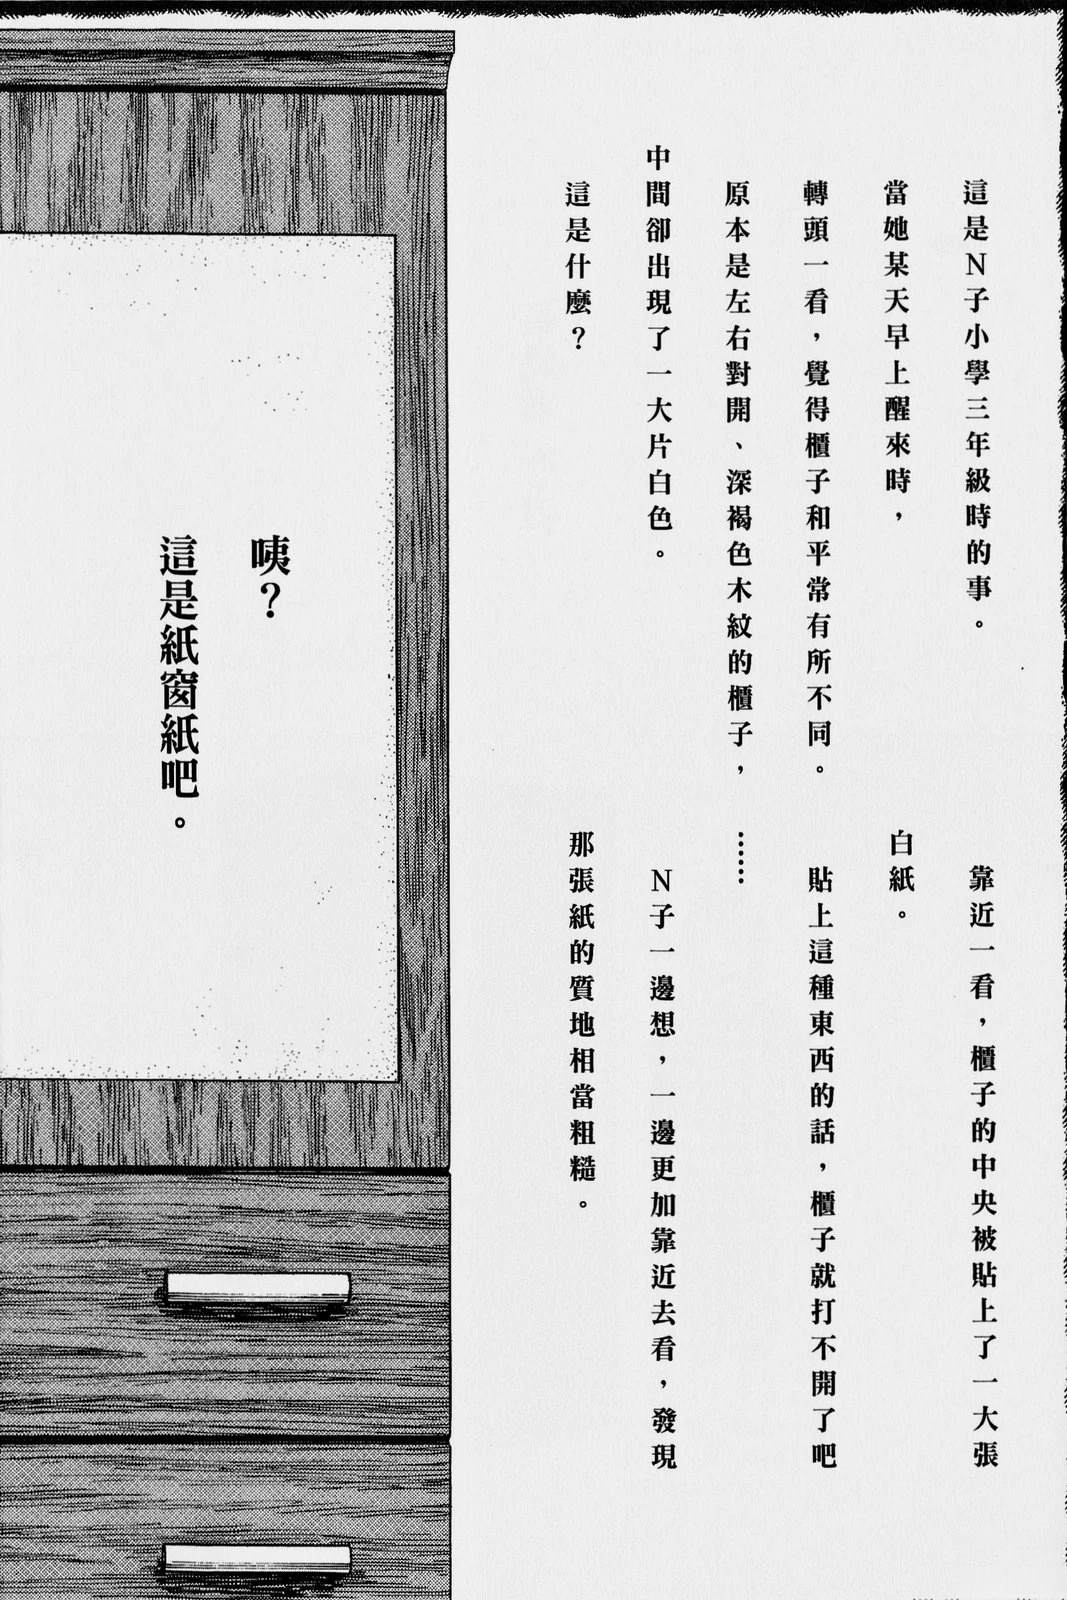 這是N子小學三年級時的事。
當她某天早上醒來時，
轉頭一看，覺得櫃子和平常有所不同。
原本是左右對開、深褐色木紋的櫃子，
中間卻出現了一大片白色。
這是什麼？
靠近一看，櫃子的中央被貼上了一大張
白紙。
貼上這種東西的話，櫃子就打不開了吧
……
N子一邊想，一邊更加靠近去看，發現
那張紙的質地相當粗糙。
咦？
這是紙窗紙吧。